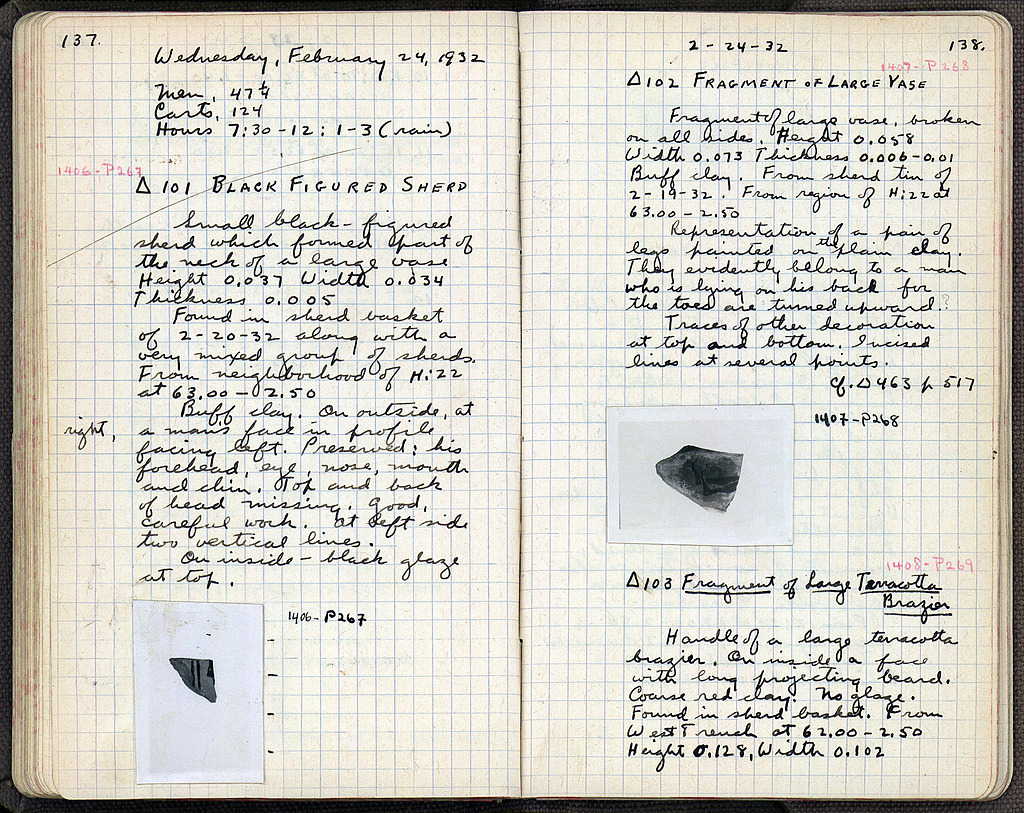 137.
Wednesday, February 24, 1932
Men, 47 1/4
Carts, 124
Hours 7:30-12: 1-3 (rain)
1406-P267
Δ 101 BLACK FIGURED SHERD
Small black-figured
sherd which formed part of
the neck of a large vase
Height 0.037 Width 0.034
Thickness 0.005
Found in sherd basket
of 2-20-32 along with a
very mixed group of sherds.
From neighborhood of H:22
at 63.00-2.50
Buff clay. On outside, at
right, a man's face in profile
facing left. Preserved: his
forehead, eye, nose, mouth
and chin. Top and back
of head missing. Good,
careful work. At left side
two vertical lines.
On inside - black glaze
at top.
1406-P267
2-24-32
138.
1407-P268
Δ102 FRAGMENT OF LARGE VASE
Fragment of large vase, broken
on all sides. Height 0.058
Width 0.073 Thickness 0.006-0.01
Buff clay. From sherd tin of
2-19-32. From region of H:22 at
63.00-2.50
Representation of a pair of
legs painted on the plain clay.
They evidently belong to a man
who is lying on his back for
the toes are turned upward?
Traces of other decoration
at top and bottom. Incised
lines at several points.
cf. Δ463 p 517
1407-P268
1408-P269
Δ103 Fragment of Large Terracotta
Brazier
Handle of a large terracotta
brazier. On inside a face
with long projecting beard.
Coarse red clay. No glaze.
Found in sherd basket. From
West Trench at 62.00-2.50
Height 0.128, Width 0.102